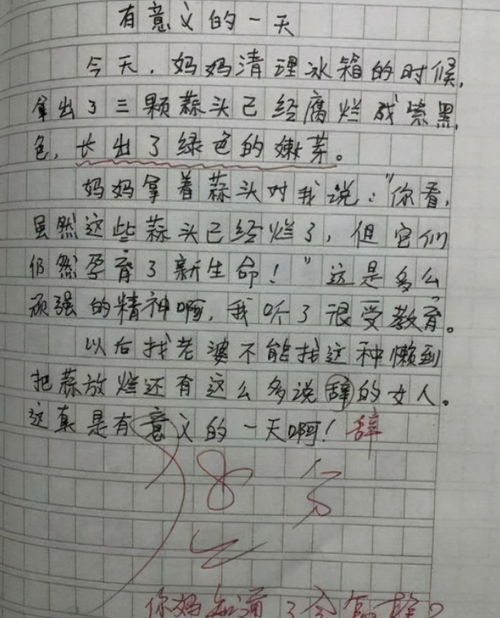 有意义的一天
今天，妈妈清理冰箱的时候，
拿出了三颗蒜头已经腐烂成紫黑
色，长出了绿色的嫩芽。
妈妈拿着蒜头对我说："你看，
虽然这些蒜头已经烂了，但它们
仍然孕育了新生命！"这是多么
顽强的精神啊，我听了很受教育。
以后找老婆不能找这种懒到
把蒜放烂还有这么多说辞的女人。
这真是有意义的一天啊！ 辞
8分
你妈知道了会